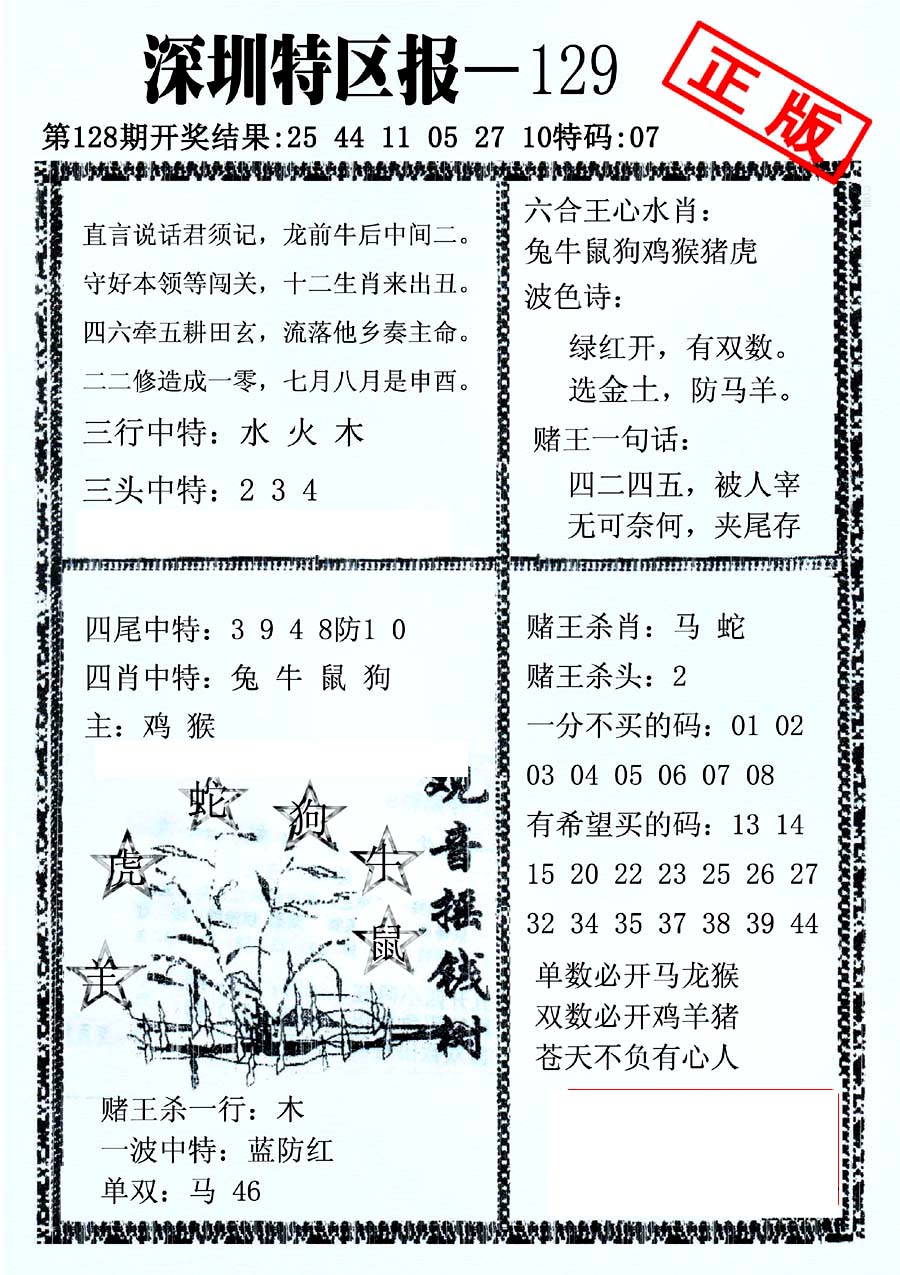 深圳特区报—129
正版
第128期开奖结果:25 44 11 05 27 10特码:07
直言说话君须记，龙前牛后中间二。
守好本领等闯关，十二生肖来出丑。
四六牵五耕田玄，流落他乡奏主命。
二二修造成一零，七月八月是申酉。
三行中特：水 火 木
三头中特：2 3 4
六合王心水肖：
兔牛鼠狗鸡猴猪虎
波色诗：
绿红开，有双数。
选金土，防马羊。
赌王一句话：
四二四五，被人宰
无可奈何，夹尾存
四尾中特：3 9 4 8防1 0
四肖中特：兔 牛 鼠 狗
主：鸡 猴
蛇
狗
虎
牛
鼠
羊
观音摇钱树
赌王杀一行：木
一波中特：蓝防红
单双：马 46
赌王杀肖：马 蛇
赌王杀头：2
一分不买的码：01 02
03 04 05 06 07 08
有希望买的码：13 14
15 20 22 23 25 26 27
32 34 35 37 38 39 44
单数必开马龙猴
双数必开鸡羊猪
苍天不负有心人